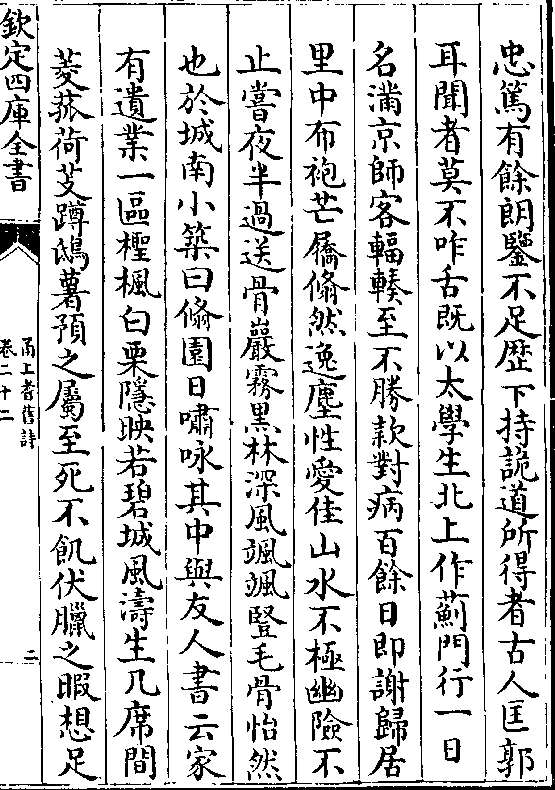 忠篤有餘朗鑒不足歴下持詭道所得者古人匡郭
耳聞者莫不咋舌既以太學生北上作薊門行一日
名滿京師客輻輳至不勝款對病百餘日即謝歸居
里中布袍芒屩翛然逸塵性愛佳山水不極幽險不
止嘗夜半過送骨巖霧黒林深風颯颯豎毛骨怡然
也於城南小築曰翛園日嘯咏其中與友人書云家
有遺業一區檉楓臼栗隱映若碧城風濤生几席間
菱菰荷芡蹲鴟薯預之屬至死不飢伏臘之暇想足
欽定四庫全書
甬上耆舊詩
卷二十二
二